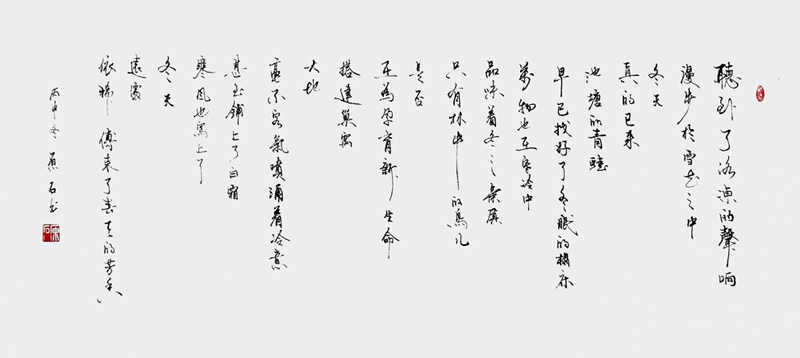 聽到了凍的聲响
漫步於雪花之中
冬天
真的已來
池塘的青蛙
早已找好了冬眠的床
萬物也在寒冷中
品味着冬之
只有林中的鳥儿
是否
在為孕育新生命
搭建巢窩
大地
毫不客氣噴涌着冷意
甚至鋪上了白霜
寒風也寫上了
冬天
遠處
依稀傳來了春天的芳香
丙申冬 石書